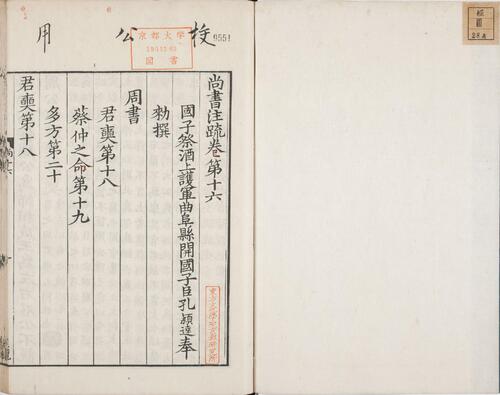 尚書注疏卷第十六
國子祭酒上護軍曲阜縣開國子臣孔穎達奉
勑撰
周書
君奭第十八
蔡仲之命第十九
多方第二十
君奭第十八
校公用
京都大學
圖書
0551
東方文化學院京都研究所